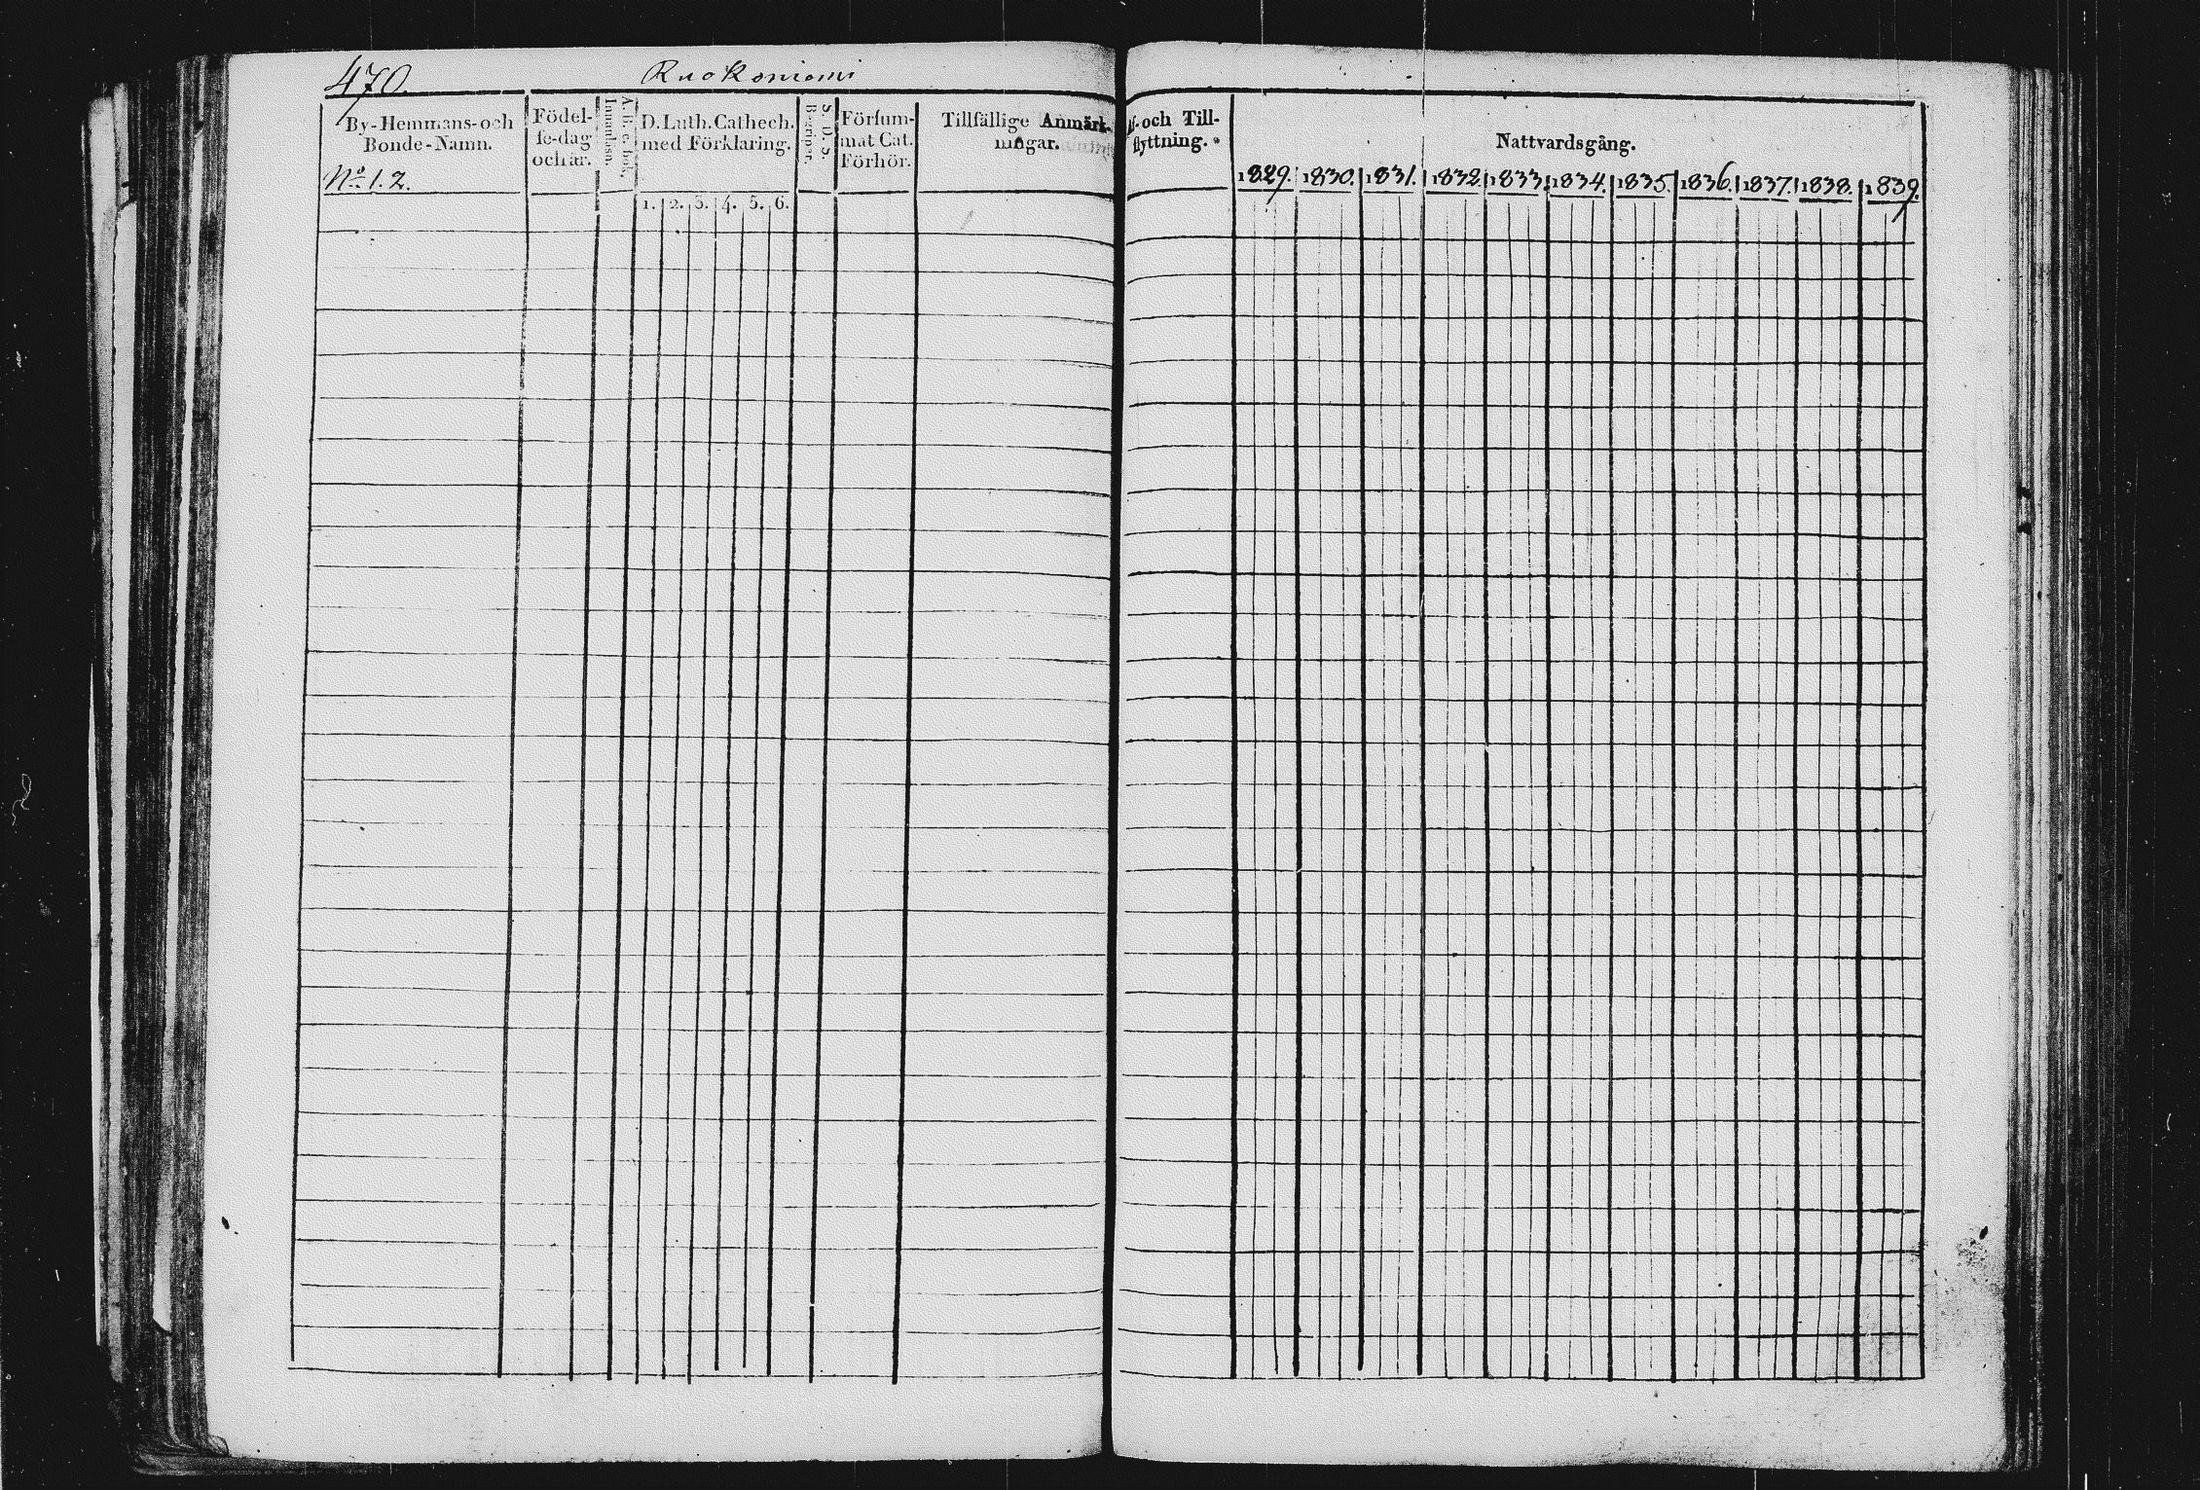 470. Ruokoniemi
By-Hemmans-och
Bonde-Namn.
No 1. 2.
Födel-
se-dag
och år.
A. B. c-bok.
Innanläsn.
D. Luth. Cathech.
med Förklaring.
1. 2. 3. 4. 5. 6.
S. D. S.
Begrepp.
Försum-
mat Cat.
Förhör.
Tillfällige Anmärk-
ningar.
Af- och Till-
flyttning.
Nattvardsgång.
1829. 1830. 1831. 1832. 1833. 1834. 1835. 1836. 1837. 1838. 1839.